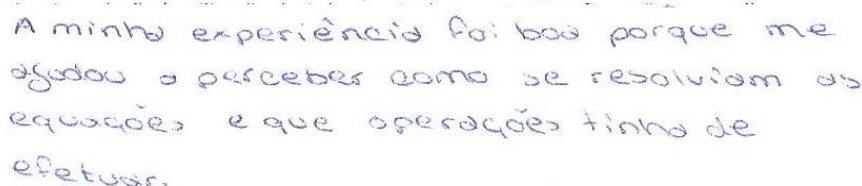 A minha experiência foi boa porque me
ajudou a perceber como se resolviam as
equações e que operações tinha de
efetuar.